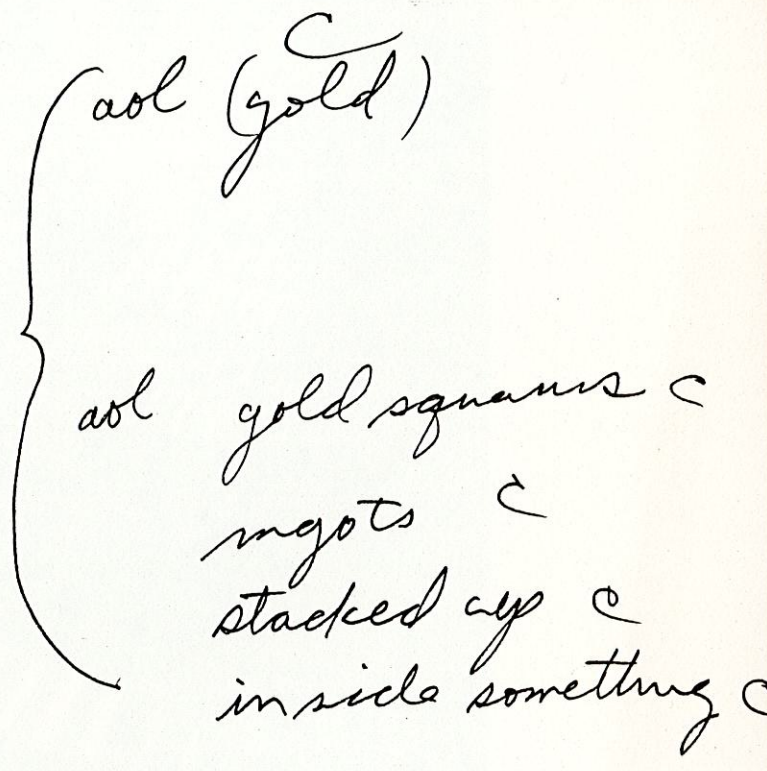 C
aol (gold)
aol gold squares C
ingots C
stacked up C
inside something C